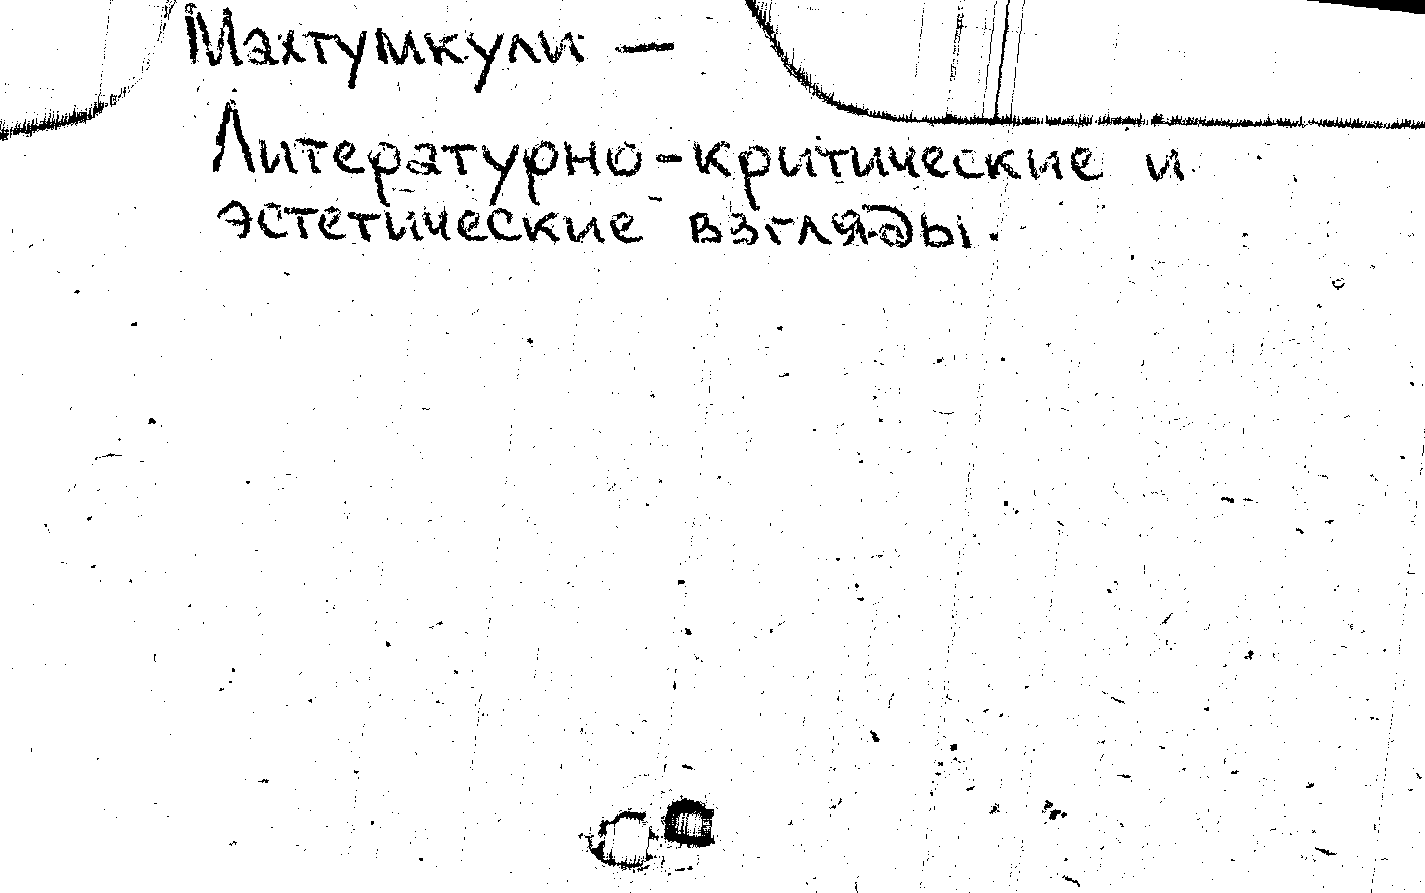 Махтумкули —
Литературно-критические и
эстетические взгляды.